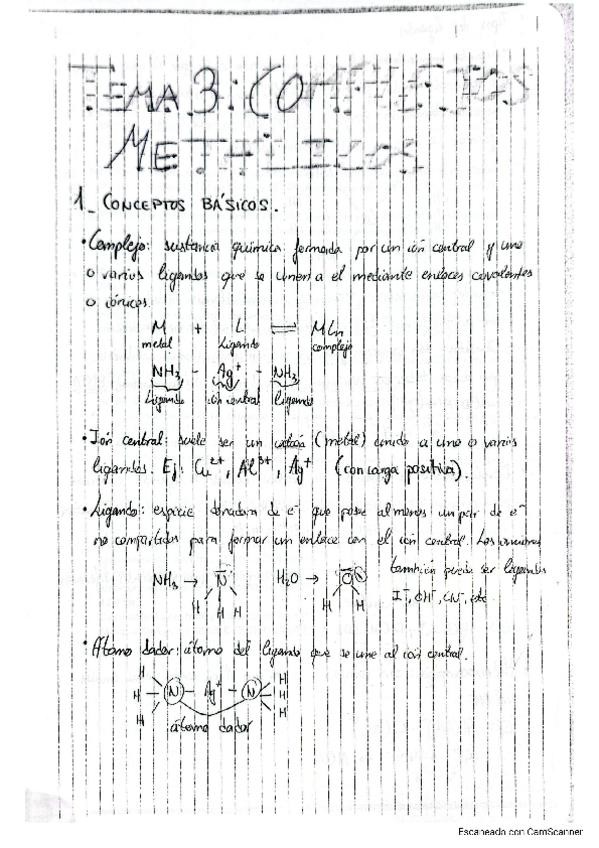 TEMA 3: COMPLEJOS
METÁLICOS
1_ CONCEPTOS BÁSICOS.
• Complejo: sustancia química formada por un ión central y uno
o varios ligandos que se unen a el mediante enlaces covalentes
o iónicos.
M + L ⇌ MLn
metal Ligando complejo
NH₃ - Ag⁺ - NH₃
Ligando ión central Ligando
• Ión central: suele ser un catión (metal) unido a uno o varios
ligandos. Ej: Cu²⁺, Al³⁺, Ag⁺ (con carga positiva).
• Ligando: especie donadora de e⁻ que posee al menos un par de e⁻
no compartidos para formar un enlace con el ión central. Los aniones
también puede ser ligandos
NH₃ → N H₂O → O
I⁻, OH⁻, CN⁻, etc
H H H H H
• Átomo dador: átomo del ligando que se une al ión central.
H H
H - N - Ag⁺ - N - H
H H
átomo dador
Escaneado con CamScanner